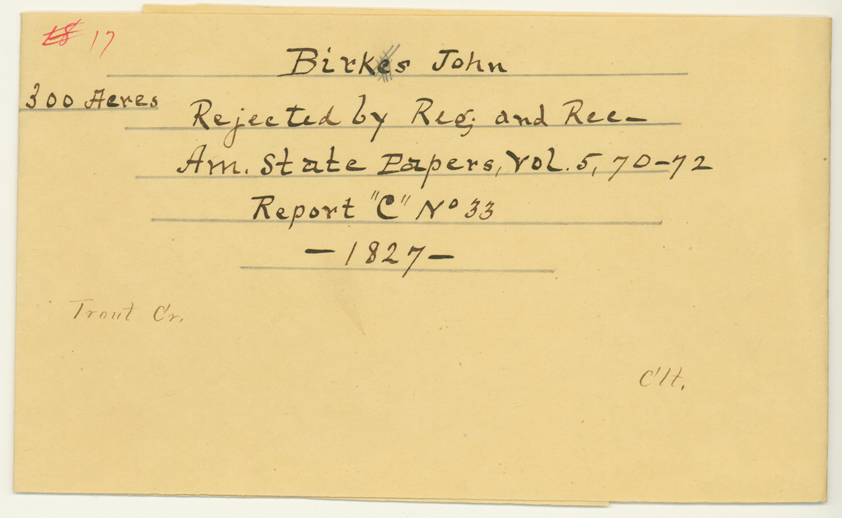 17
Birks John
300 Acres
Rejected by Reg. and Rec—
Am. State Papers, Vol. 5, 70-72
Report "C" No 33
— 1827 —
Trout Cr.